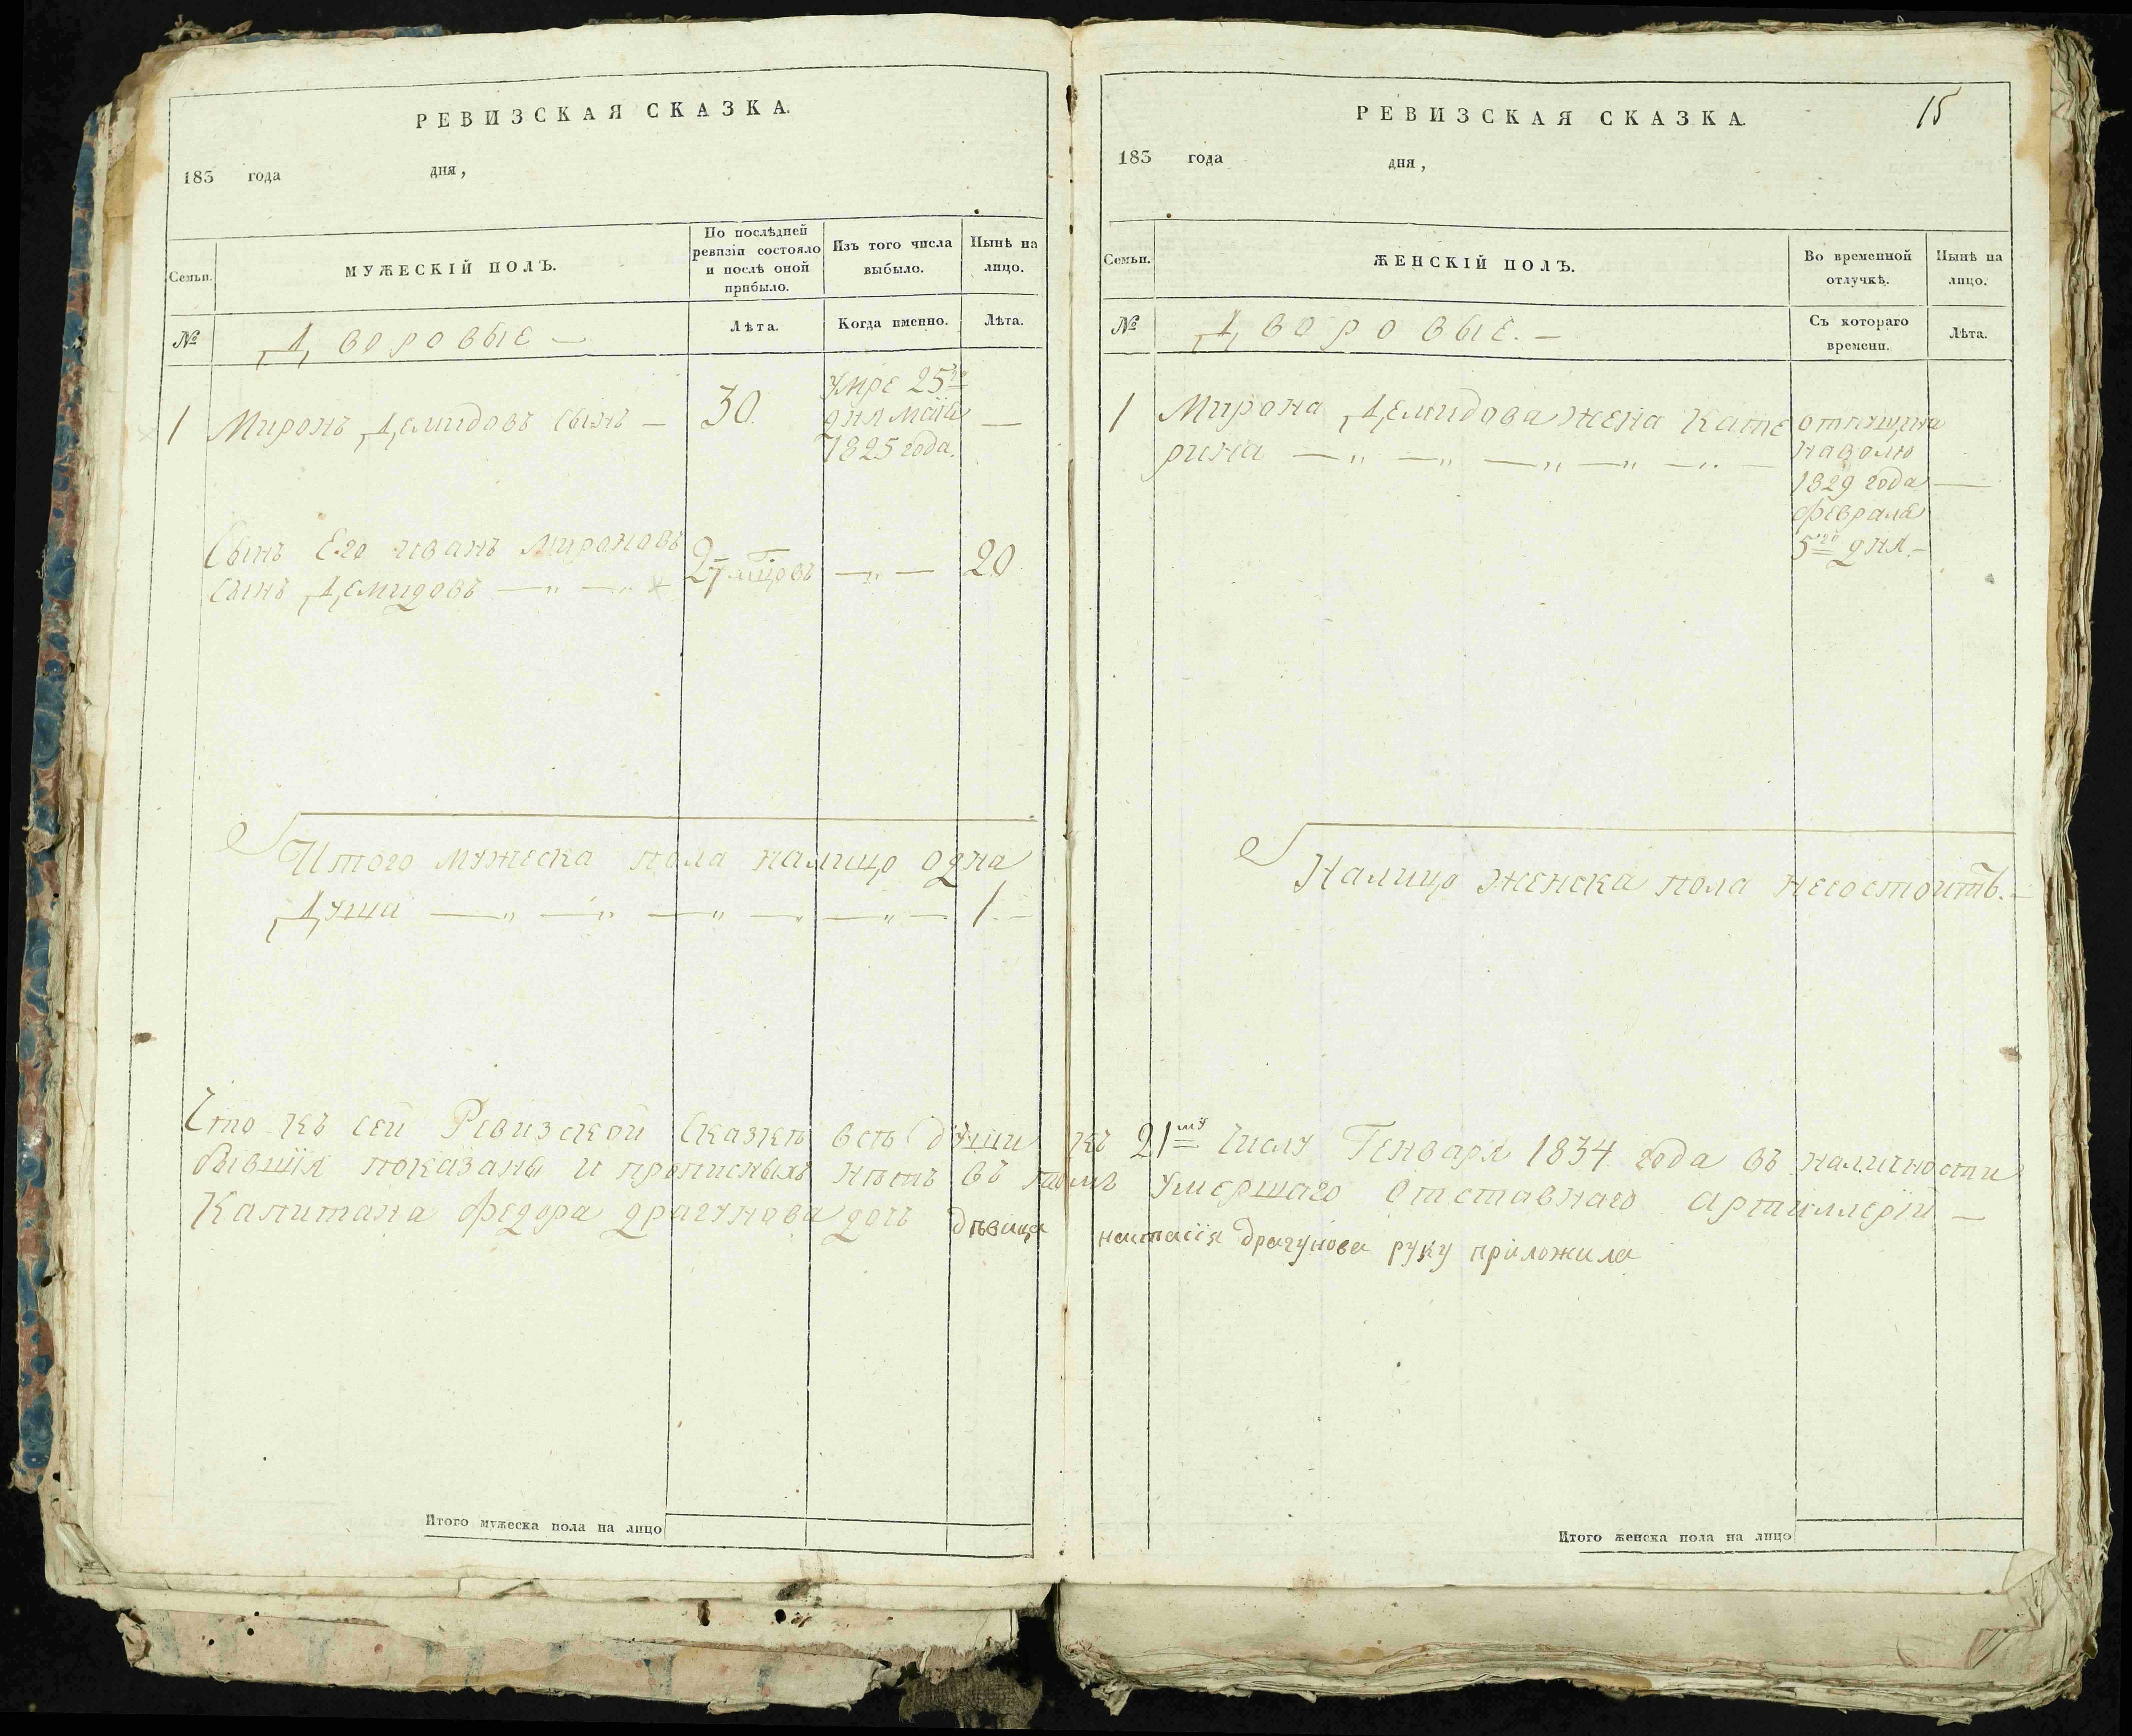 РЕВИЗСКАЯ СКАЗКА.
183 года дня,
Семьи.
МУЖЕСКІЙ ПОЛЪ.
По послѣдней ревизіи состояло и послѣ оной прибыло.
Изъ того числа выбыло.
Нынѣ на лицо.
№
Дворовые —
Лѣта.
Когда именно.
Лѣта.
1 Миронъ Демидовъ сынъ — 30. —
умре 25го
дня маія
1825 года.
Сынъ Его иванъ мироновъ
сынъ Демидовъ — „ — „ 20.
Итого мужеска пола налицо одна
Душа — „ — „ — „ — „ — „ — 1. —
Что къ сей Ревизской Сказкѣ всѣ души
бывшія показаны и прописныхъ нѣтъ въ томъ
Капитана федора драгунова дочь дѣвица
Итого мужеска пола на лицо
РЕВИЗСКАЯ СКАЗКА.
15
183 года дня,
Семьи.
ЖЕНСКІЙ ПОЛЪ.
Во временной отлучкѣ.
Нынѣ на лицо.
№
Дворовые. —
Съ котораго времени.
Лѣта.
1 Мирона Демидова жена Кате
рина — „ — „ — „ — „ — „ —
отпущена
наволю
1829 года —
февраля
5го дня. —
Налицо женска пола несостоитъ. —
къ 21му числу Генваря 1834 года въ наличности
умершаго Отставнаго Артиллеріи —
настасія драгунова руку приложила
Итого женска пола на лицо